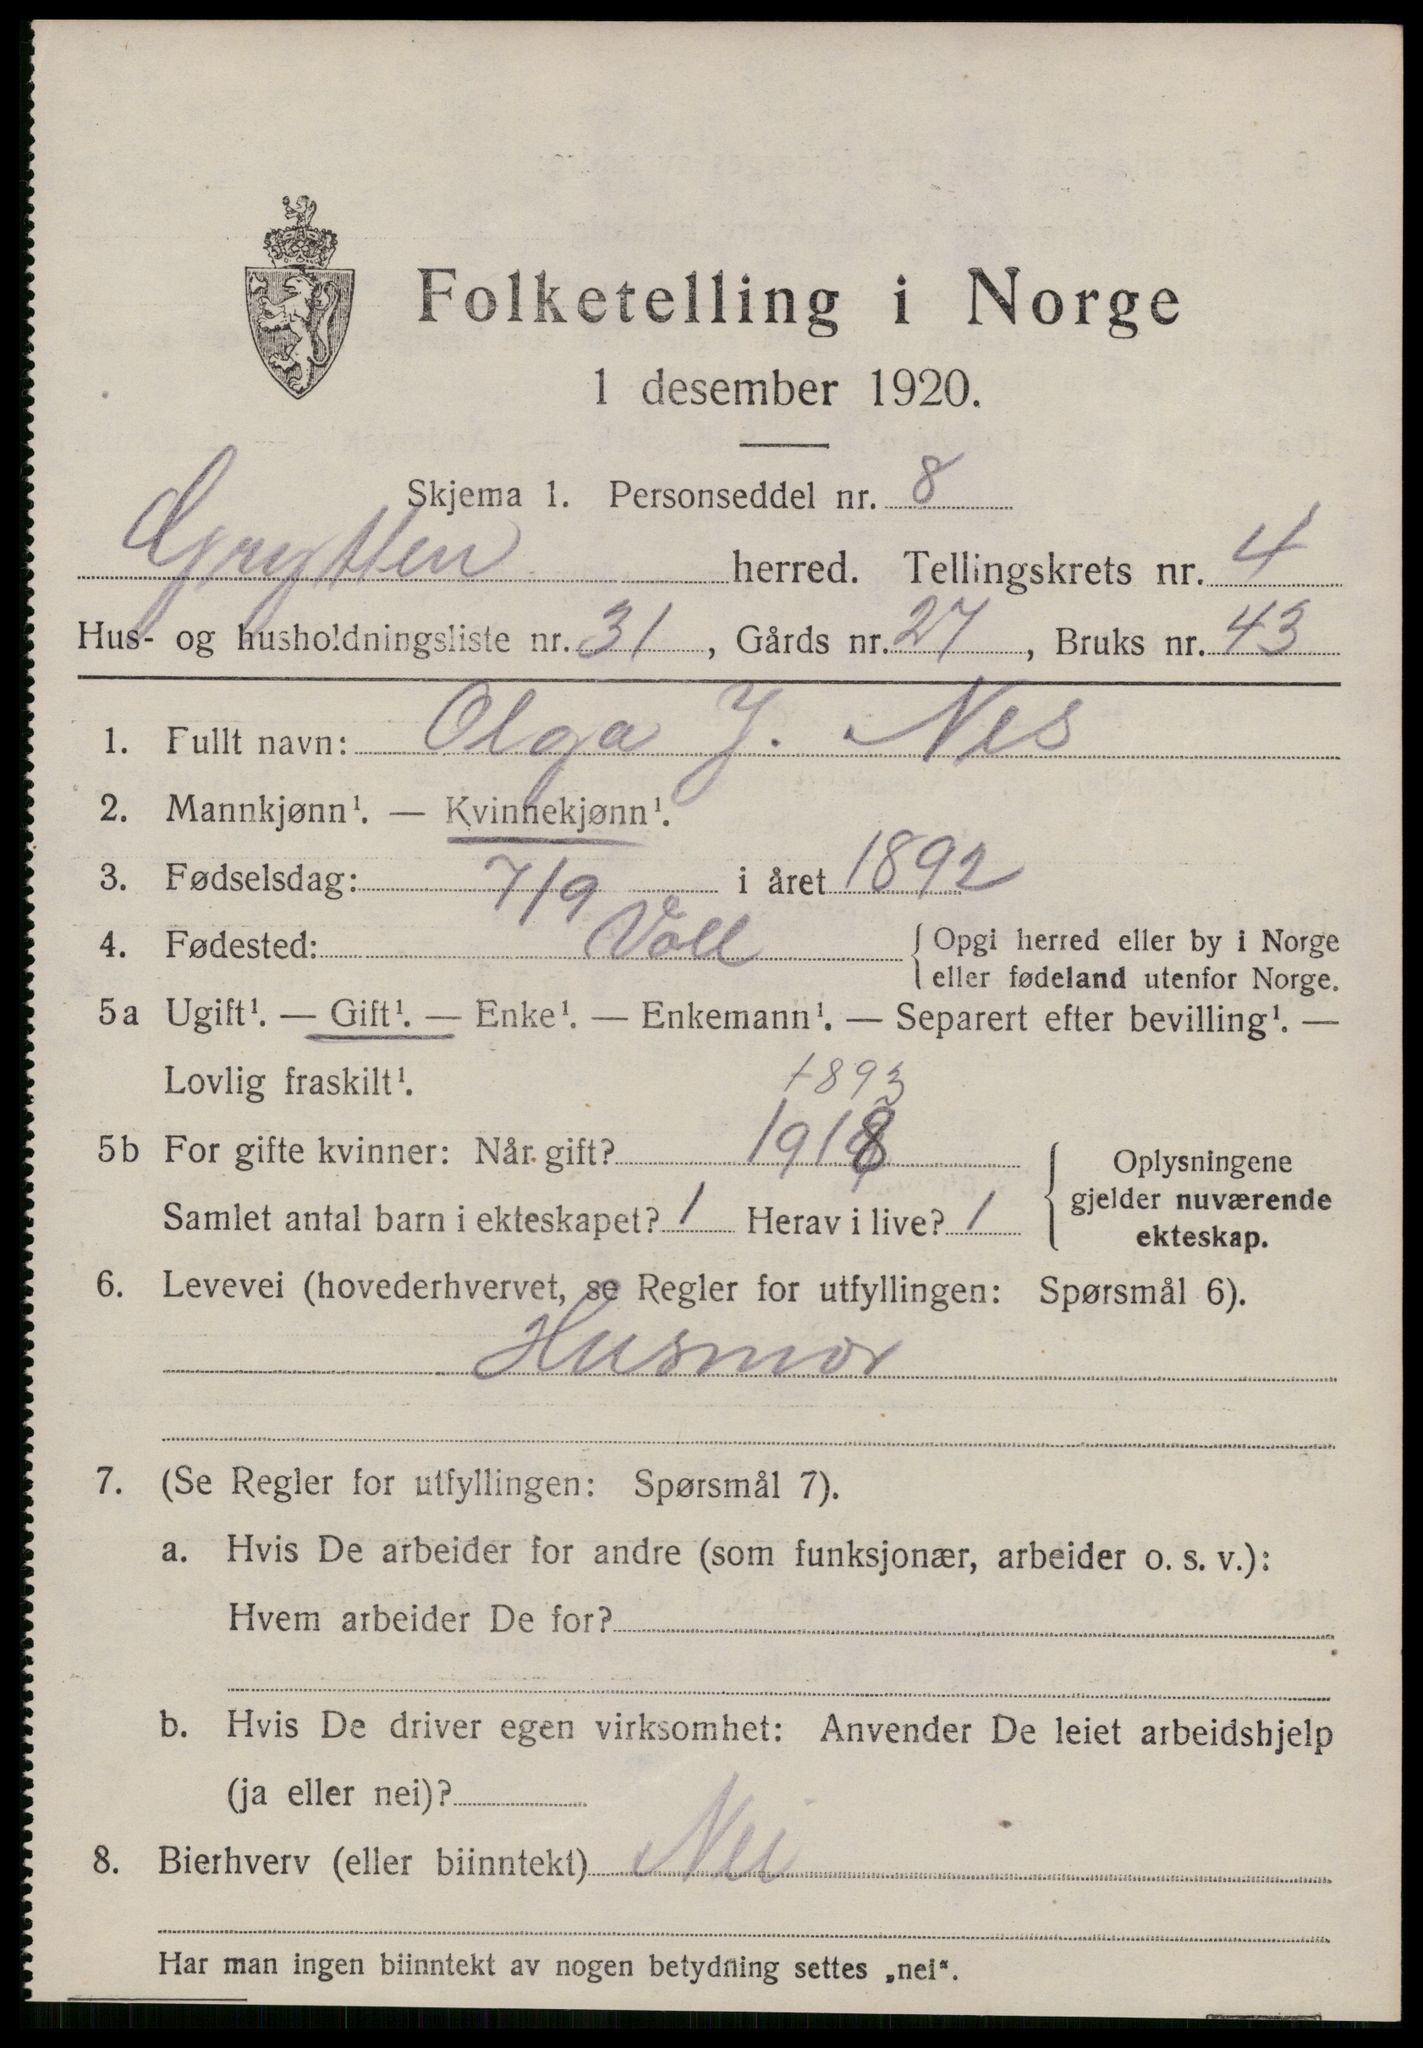 Folketelling i Norge
1 desember 1920.
Skjema 1. Personseddel nr. 8
Grytten herred. Tellingskrets nr. 4
Hus- og husholdningsliste nr. 31, Gårds nr. 27, Bruks nr. 43
1. Fullt navn: Olga J. Nes
2. Mannkjønn¹. — Kvinnekjønn¹.
3. Fødselsdag: 7/9 i året 1892
4. Fødested: Voll { Opgi herred eller by i Norge
eller fødeland utenfor Norge.
5a Ugift¹. — Gift¹. — Enke¹. — Enkemann¹. — Separert efter bevilling¹. —
Lovlig fraskilt¹.
1893
5b For gifte kvinner: Når gift? 1918
Samlet antal barn i ekteskapet? 1 Herav i live? 1
Oplysningene
gjelder nuværende
ekteskap.
6. Levevei (hovederhvervet, se Regler for utfyllingen: Spørsmål 6).
Husmor
7. (Se Regler for utfyllingen: Spørsmål 7).
a. Hvis De arbeider for andre (som funksjonær, arbeider o. s. v.):
Hvem arbeider De for?
b. Hvis De driver egen virksomhet: Anvender De leiet arbeidshjelp
(ja eller nei)?
8. Bierhverv (eller biinntekt) Nei
Har man ingen biinntekt av nogen betydning settes „nei“.